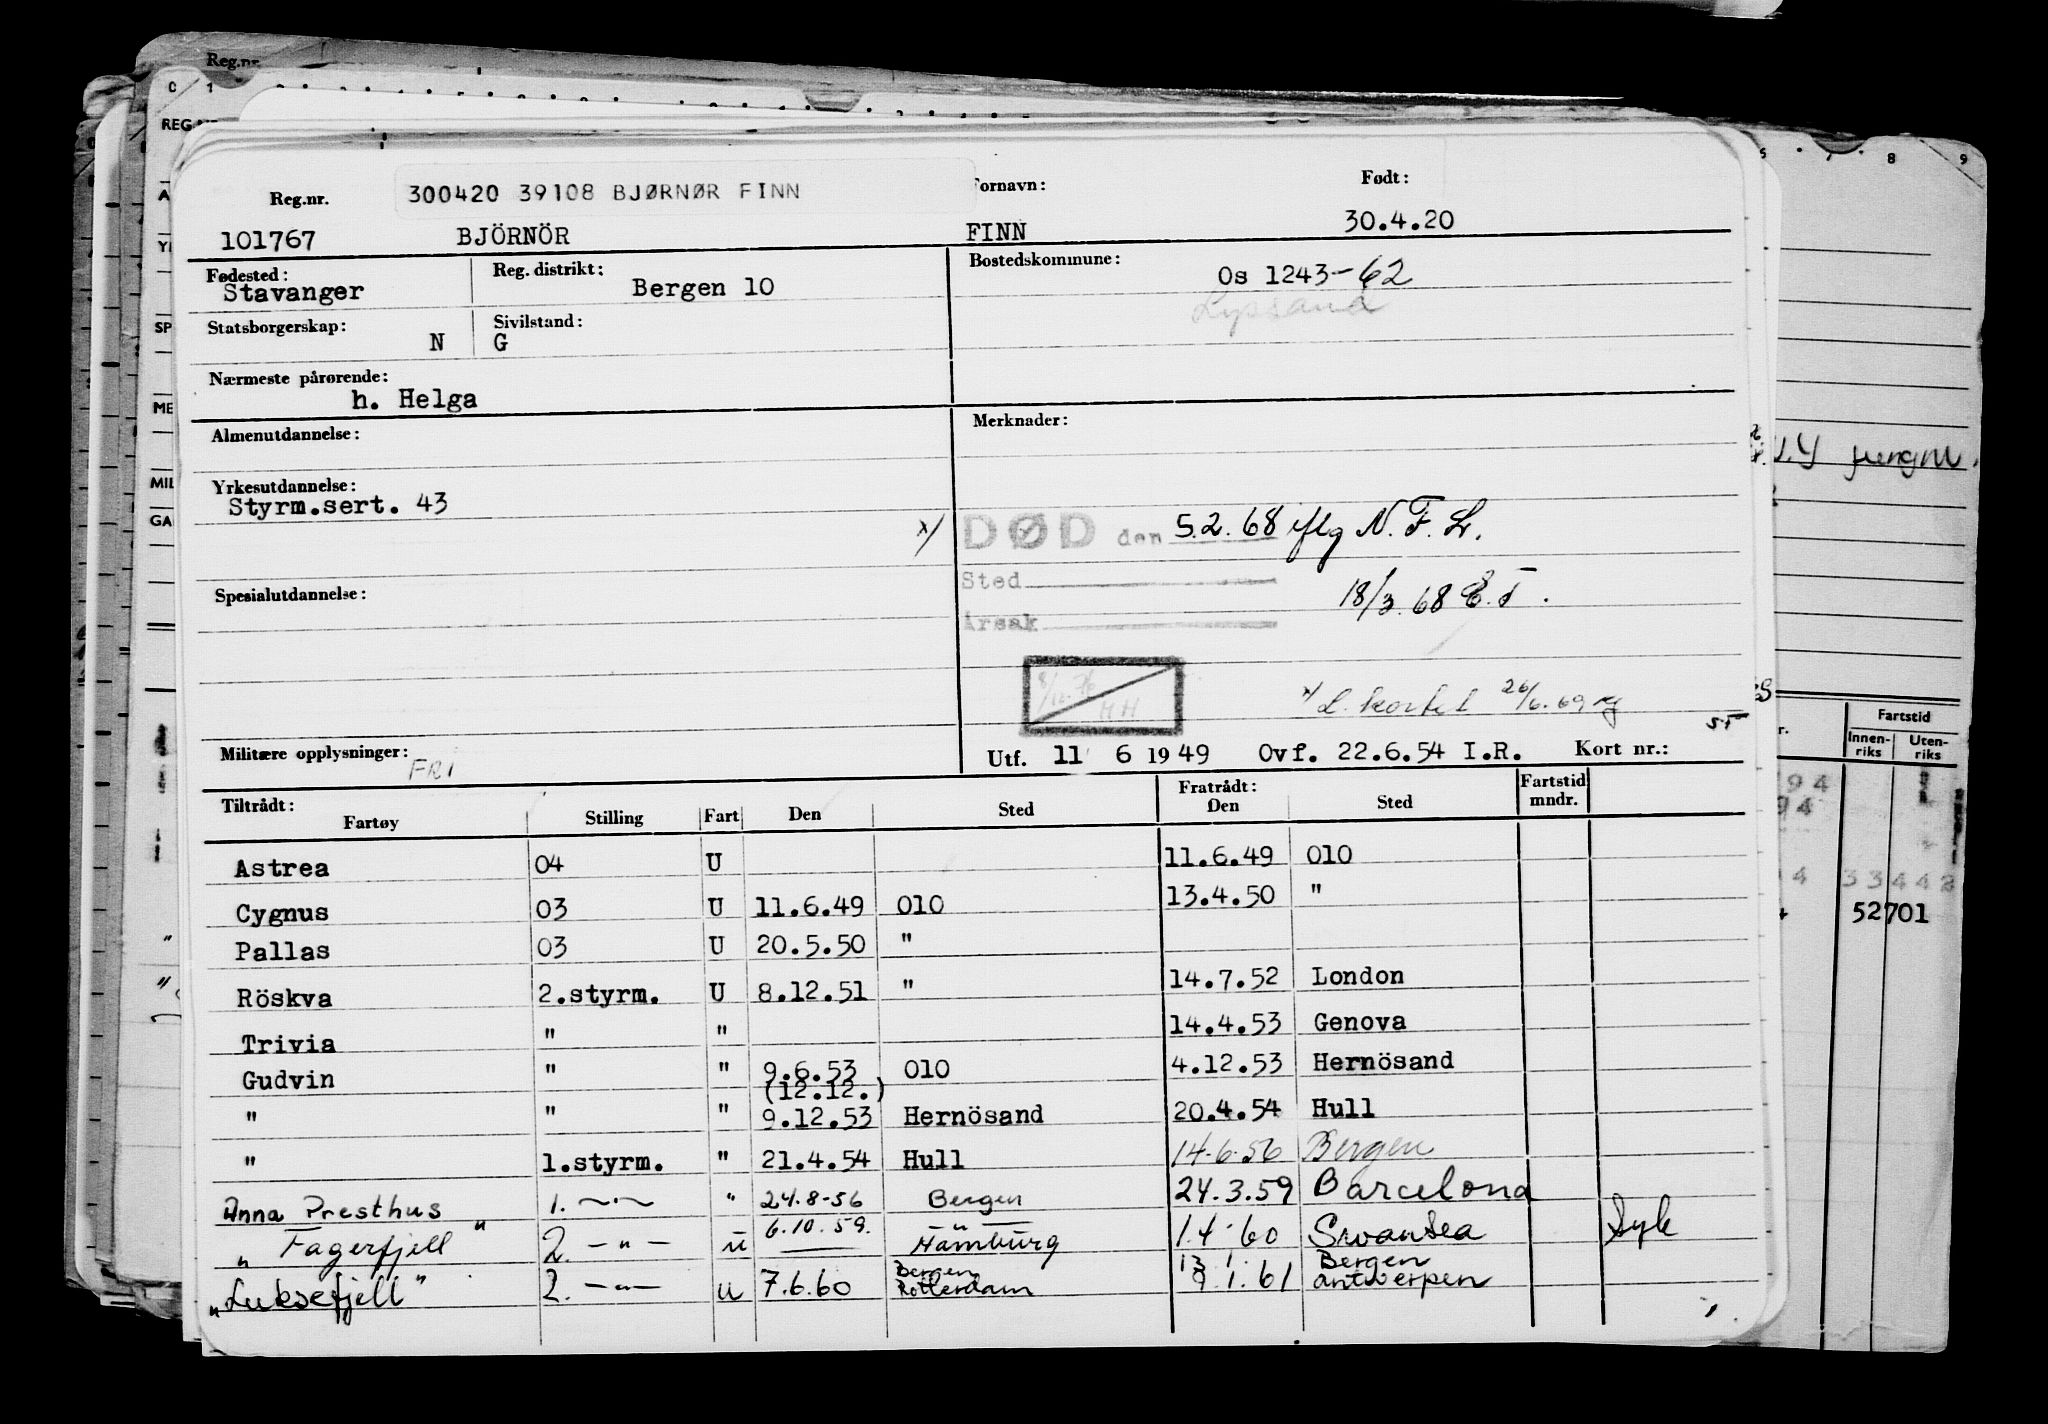 Reg.nr.
C 1
REG.NR
Reg.nr. 300420 39108 BJØRNØR FINN Fornavn: Født:
101767 BJÖRNÖR FINN 30.4.20
Fødested: Stavanger Reg. distrikt: Bergen 10 Bostedskommune: Os 1243-62
Lyssand
Statsborgerskap: N Sivilstand: G
Nærmeste pårørende:
h. Helga
Almenutdannelse: Merknader:
Yrkesutdannelse:
Styrm.sert. 43
x/ DØD den 5.2.68 iflg N.F.L.
Spesialutdannelse: Sted
18/3.68 E.T.
Årsak
8/12.76 HH
x/ L. kortet 26/6.69
ST
Militære opplysninger: FRI Utf. 11 6 1949 Ovf. 22.6.54 I.R. Kort nr.:
Tiltrådt: Fratrådt: Fartstid mndr.
Fartøy Stilling Fart Den Sted Den Sted
Astrea 04 U 11.6.49 010
Cygnus 03 U 11.6.49 010 13.4.50 "
Pallas 03 U 20.5.50 "
Röskva 2.styrm. U 8.12.51 " 14.7.52 London
Trivia " " 14.4.53 Genova
Gudvin " " 9.6.53 010 4.12.53 Hernösand
(12.12.)
" " " 9.12.53 Hernösand 20.4.54 Hull
" 1.styrm. " 21.4.54 Hull 14-6-56 Bergen
Anna Presthus 1. —"— " 24.8-56 Bergen 24.3.59 Barcelona
" Fagerfjell " 2. —"— u 6.10.59. Hamburg 1.4-60 Swansea Syk
Bergen 13 1 Bergen
"Luksefjell" 2. —"— u 7.6.60 Rotterdam 9.1.61 Antwerpen
8 9
Fartstid
Innenriks Utenriks
33442
52701